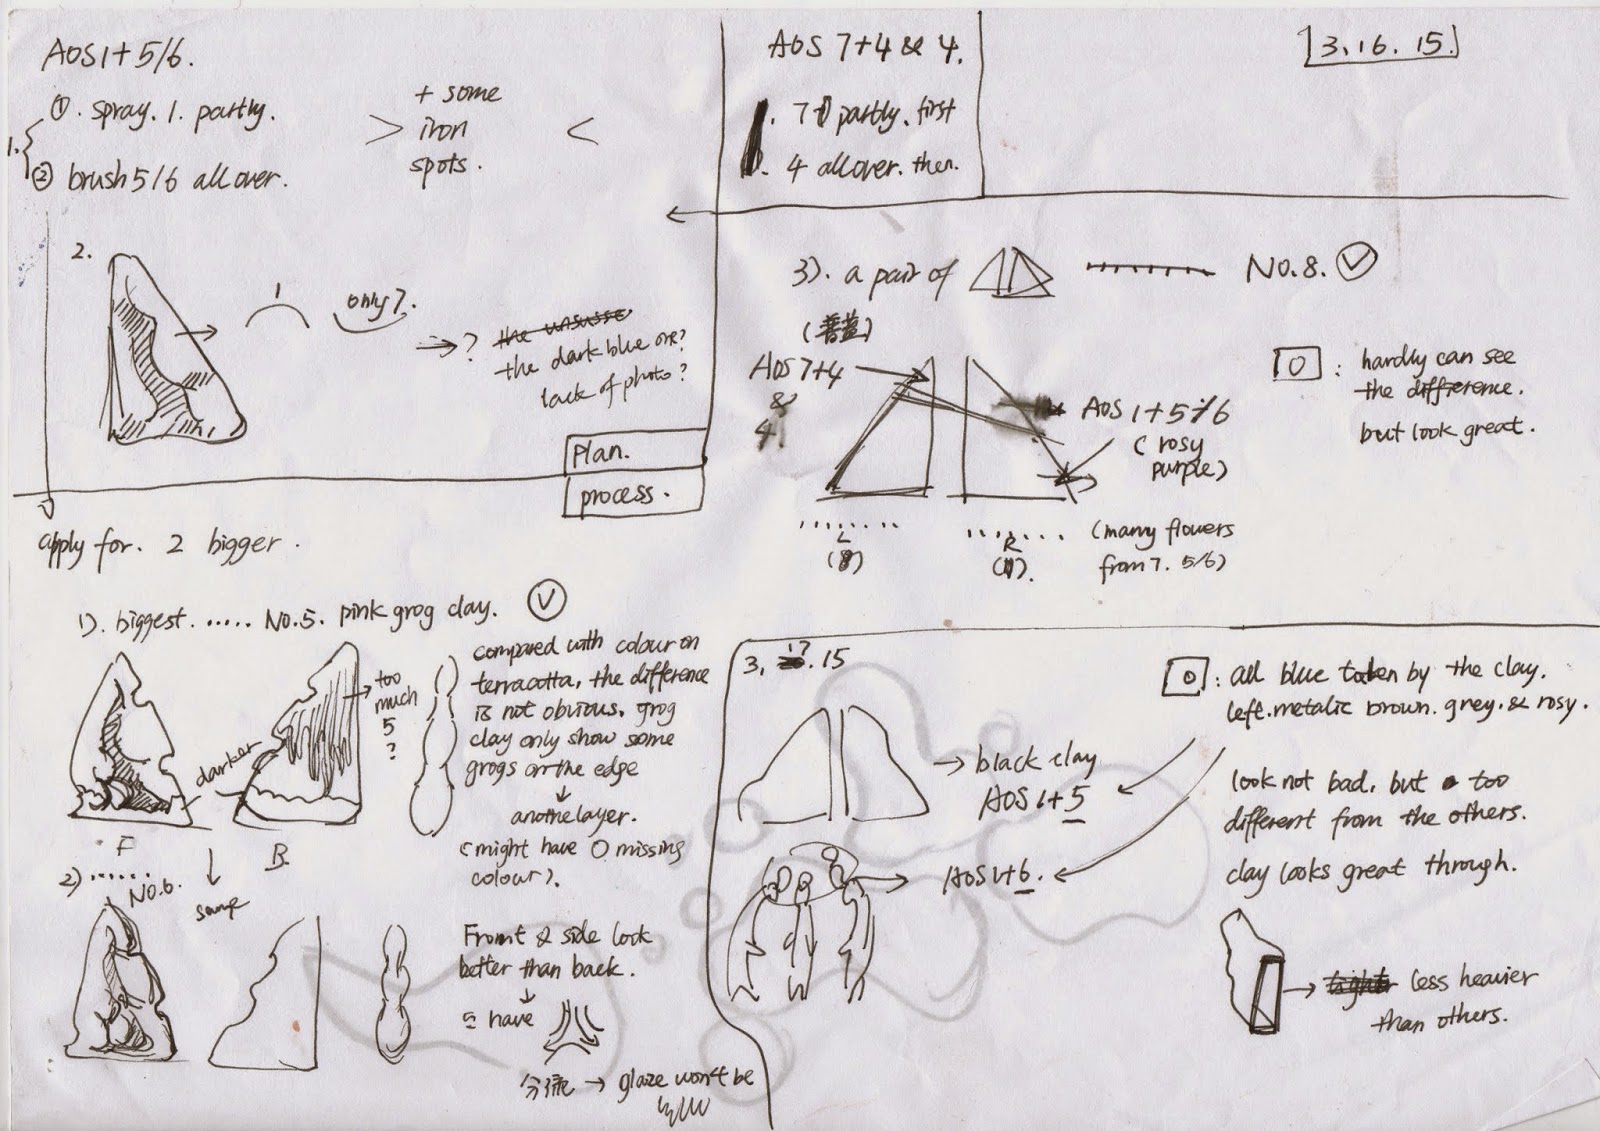 AOS 1+5/6.
1.
① . spray. 1. partly.
② brush 5/6 all over.
+ some
iron
spots.
AOS 7+4 & 4.
partly. first
4 all over. then.
3. 16. 15.
2.
1
only 7.
?
the dark blue one?
lack of photo?
plan.
process.
3). a pair of
NO.8.
AOS 7+4
&
4.
AOS 1+5/6
( rosy
purple )
L
R
(many flowers
from 7. 5/6)
O : hardly can see
the difference.
but look great.
apply for. 2 bigger.
1). biggest. ..... NO.5. pink grog clay.
too
much
5
?
darker
F
B.
same
compared with colour on
terracotta, the difference
is not obvious. grog
clay only show some
grogs on the edge
another layer.
(might have O missing
colour).
2) ...... NO.6.
Front & side look
better than back.
have
分流 → glaze won't be
3, 17. 15
→ black clay
AOS 1+5
AOS 1+6.
O : all blue taken by the clay.
left. metalic brown. grey. & rosy.
look not bad. but too
different from the others.
clay looks great through.
less heavier
than others.